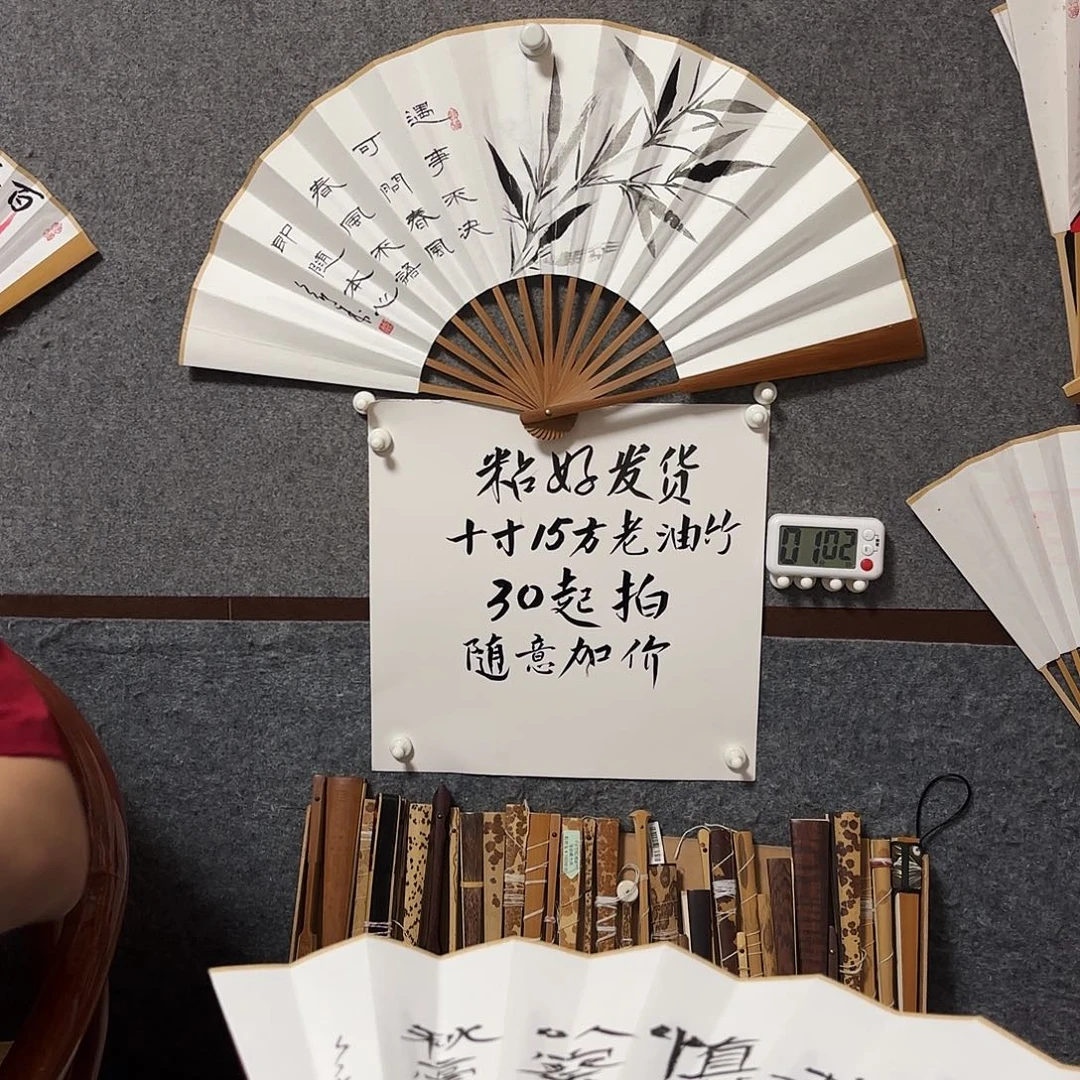 遇事不决
可问春风
春风不语
即随本心
粘好发货
十寸15方老油竹
30起拍
随意加价
0102